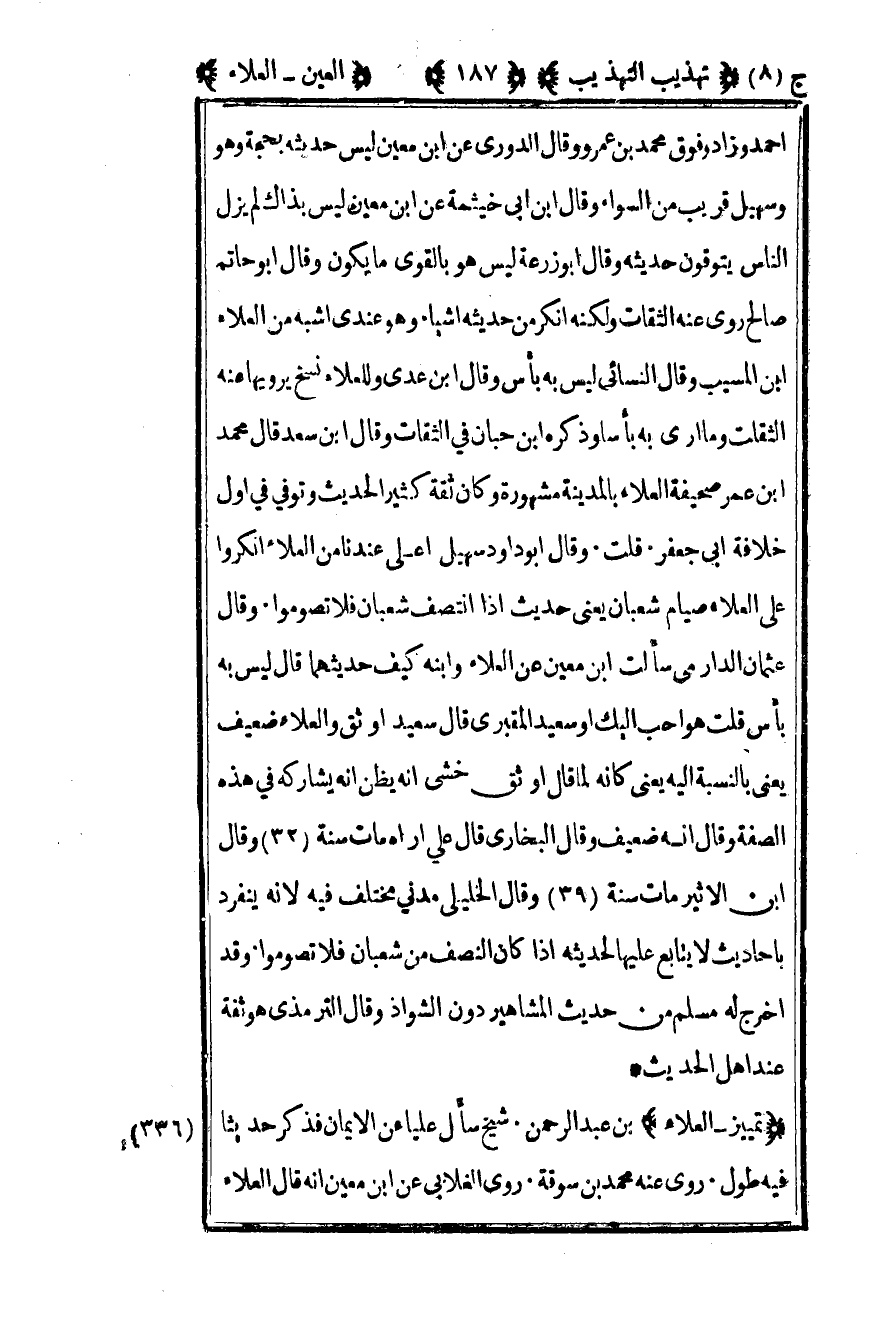 ج (٨) ﴿ تهذيب التهذيب ﴾ ﴿ ١٨٧ ﴾ ﴿ العين ـ العلاء ﴾
احمد وزاد وفوق محمد بن عمرو وقال الدورى عن ابن معين ليس حديثه بحجة وهو
وسهيل قريب من السواء وقال ابن ابى خيثمة عن ابن معين ليس بذاك لم يزل
الناس يتوقون حديثه وقال ابو زرعة ليس هو بالقوى ما يكون وقال ابو حاتم
صالح روى عنه الثقات ولكنه انكر من حديثه اشياء وهو عندى اشبه من العلاء
ابن المسيب وقال النسائى ليس به بأس وقال ابن عدى وللعلاء نسخ يرويها عنه
الثقات وما ارى به بأسا وذكره ابن حبان في الثقات وقال ابن سعد قال محمد
ابن عمر صحيفة العلاء بالمدينة مشهورة وكان ثقة كثير الحديث وتوفي في اول
خلافة ابى جعفر · قلت · وقال ابو داود سهيل اعلى عندنا من العلاء انكروا
على العلاء صيام شعبان يعنى حديث اذا انتصف شعبان فلا تصوموا · وقال
عثمان الدارمي سألت ابن معين عن العلاء وابنه كيف حديثهما قال ليس به
بأس قلت هو احب اليك او سعيد المقبرى قال سعيد اوثق والعلاء ضعيف
يعنى بالنسبة اليه يعنى كانه لما قال اوثق خشى انه يظن انه يشاركه في هذه
الصفة وقال انه ضعيف وقال البخارى قال علي اراه مات سنة (٣٢) وقال
ابن الاثير مات سنة (٣٩) وقال الخليلى مدني مختلف فيه لانه ينفرد
باحاديث لا يتابع عليها لحديثه اذا كان النصف من شعبان فلا تصوموا · وقد
اخرج له مسلم من حديث المشاهير دون الشواذ وقال الترمذى هو ثقة
عند اهل الحديث *
﴿ تمييز ـ العلاء ﴾ بن عبد الرحمن · شيخ سأل عليا عن الايمان فذكر حديثا (٣٣٦)
فيه طول · روى عنه محمد بن سوقة · روى الغلابى عن ابن معين انه قال العلاء